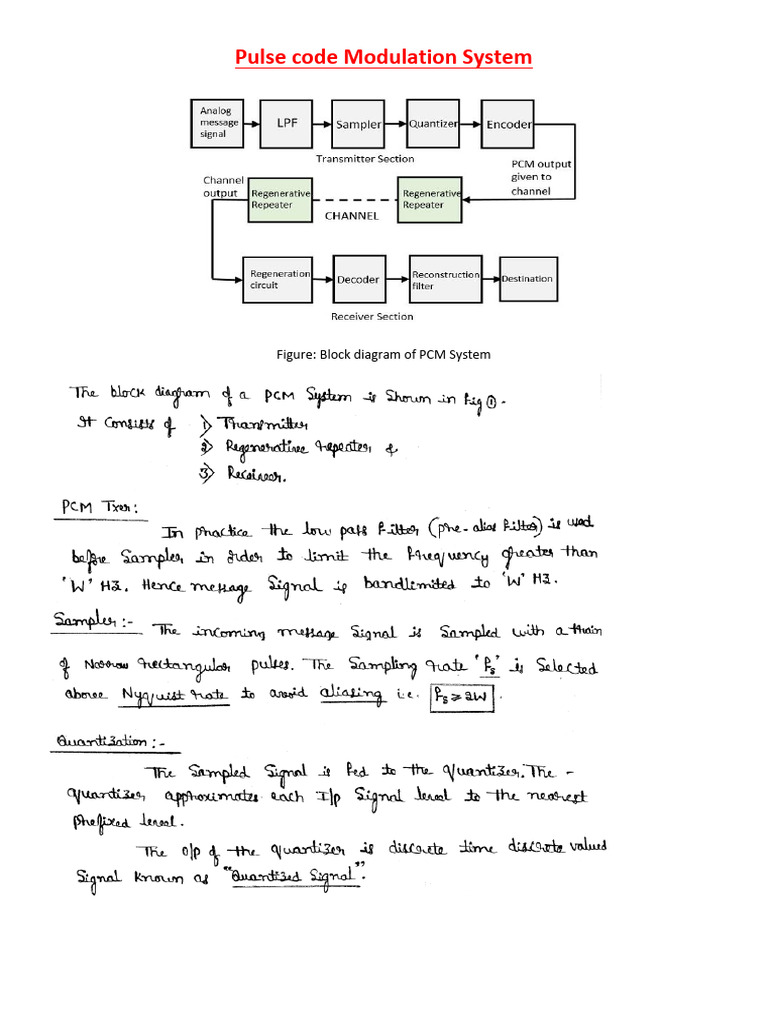 Pulse code Modulation System
Analog
message
signal
LPF
Sampler
Quantizer
Encoder
Transmitter Section
PCM output
given to
channel
Channel
output
Regenerative
Repeater
CHANNEL
Regenerative
Repeater
Regeneration
circuit
Decoder
Reconstruction
filter
Destination
Receiver Section
Figure: Block diagram of PCM System
The block diagram of a PCM System is Shown in Fig ①.
It Consists of 1) Transmitter
2) Regenerative repeater &
3) Receiver.
PCM Txer:
In practice the low pass filter (pre-alias filter) is used
before Sampler in order to limit the frequency greater than
'W' HZ. Hence message Signal is bandlimited to 'W' HZ.
Sampler :- The incoming message Signal is Sampled with a train
of Narrow rectangular pulses. The Sampling rate 'fs' is Selected
above Nyquist rate to avoid aliasing i.e. fs ≥ 2W.
Quantization :-
The Sampled Signal is fed to the quantizer. The -
quantizer approximates each I/p Signal level to the nearest
prefixed level.
The o/p of the quantizer is discrete time discrete valued
Signal known as "Quantized Signal".